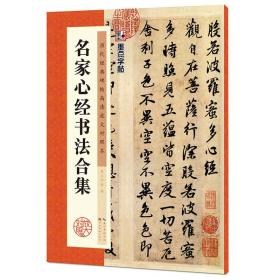 历代经典碑帖高清放大对照本
名家心经书法合集
墨点字帖
般若波羅蜜多心經
觀自在菩薩行深般若波羅蜜多
時照見五蘊皆空度一切苦厄
舍利子色不異空空不異色色即